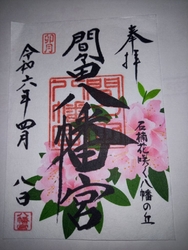 奉拝
石楠花咲く八幡の丘
間々田八幡宮
卯月
令和六年四月八日